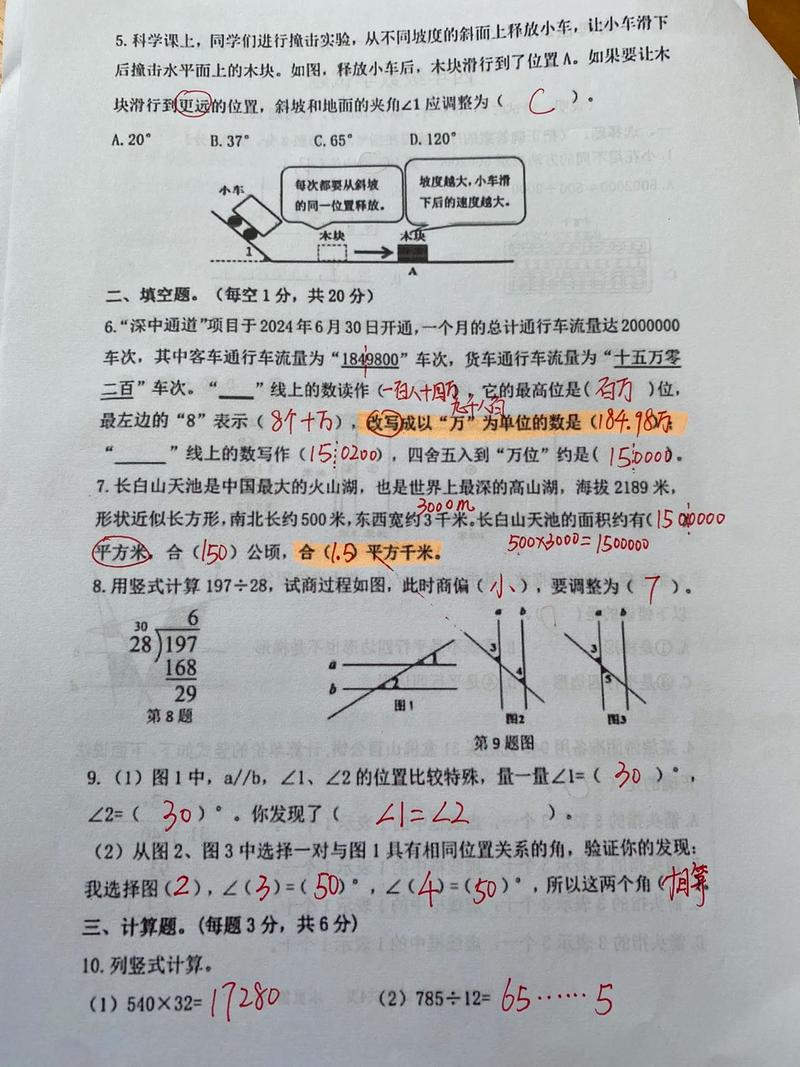 5. 科学课上，同学们进行撞击实验，从不同坡度的斜面上释放小车，让小车滑下
后撞击水平面上的木块。如图，释放小车后，木块滑行到了位置 A。如果要让木
块滑行到更远的位置，斜坡和地面的夹角∠1 应调整为（ C ）。
A. 20° B. 37° C. 65° D. 120°
小车
每次都要从斜坡
的同一位置释放。
坡度越大，小车滑
下后的速度越大。
木块 木块
1
A
二、填空题。（每空 1 分，共 20 分）
6. “深中通道”项目于 2024 年 6 月 30 日开通，一个月的总计通行车流量达 2000000
车次，其中客车通行车流量为“1849800”车次，货车通行车流量为“十五万零
二百”车次。“____”线上的数读作（一百八十四万九千八百），它的最高位是（百万）位，
最左边的“8”表示（8个十万），改写成以“万”为单位的数是（184.98万）；
“______”线上的数写作（150200），四舍五入到“万位”约是（150000）。
7. 长白山天池是中国最大的火山湖，也是世界上最深的高山湖，海拔 2189 米，
3000m
形状近似长方形，南北长约 500 米，东西宽约 3 千米。长白山天池的面积约有（1500000）
平方米，合（150）公顷，合（1.5）平方千米。
500×3000=1500000
8. 用竖式计算 197÷28，试商过程如图，此时商偏（小），要调整为（7）。
6
30
28)197
168
29
第 8 题
a
b
1
2
图1
a b
3
4
图2
a b
3
5
图3
第 9 题图
9.（1）图 1 中，a//b，∠1、∠2 的位置比较特殊，量一量∠1=（30）°，
∠2=（30）°。你发现了（∠1=∠2）。
（2）从图 2、图 3 中选择一对与图 1 具有相同位置关系的角，验证你的发现：
我选择图（2），∠（3）=（50）°，∠（4）=（50）°，所以这两个角（相等
三、计算题。（每题 3 分，共 6 分）
10. 列竖式计算。
（1）540×32=17280 （2）785÷12=65……5